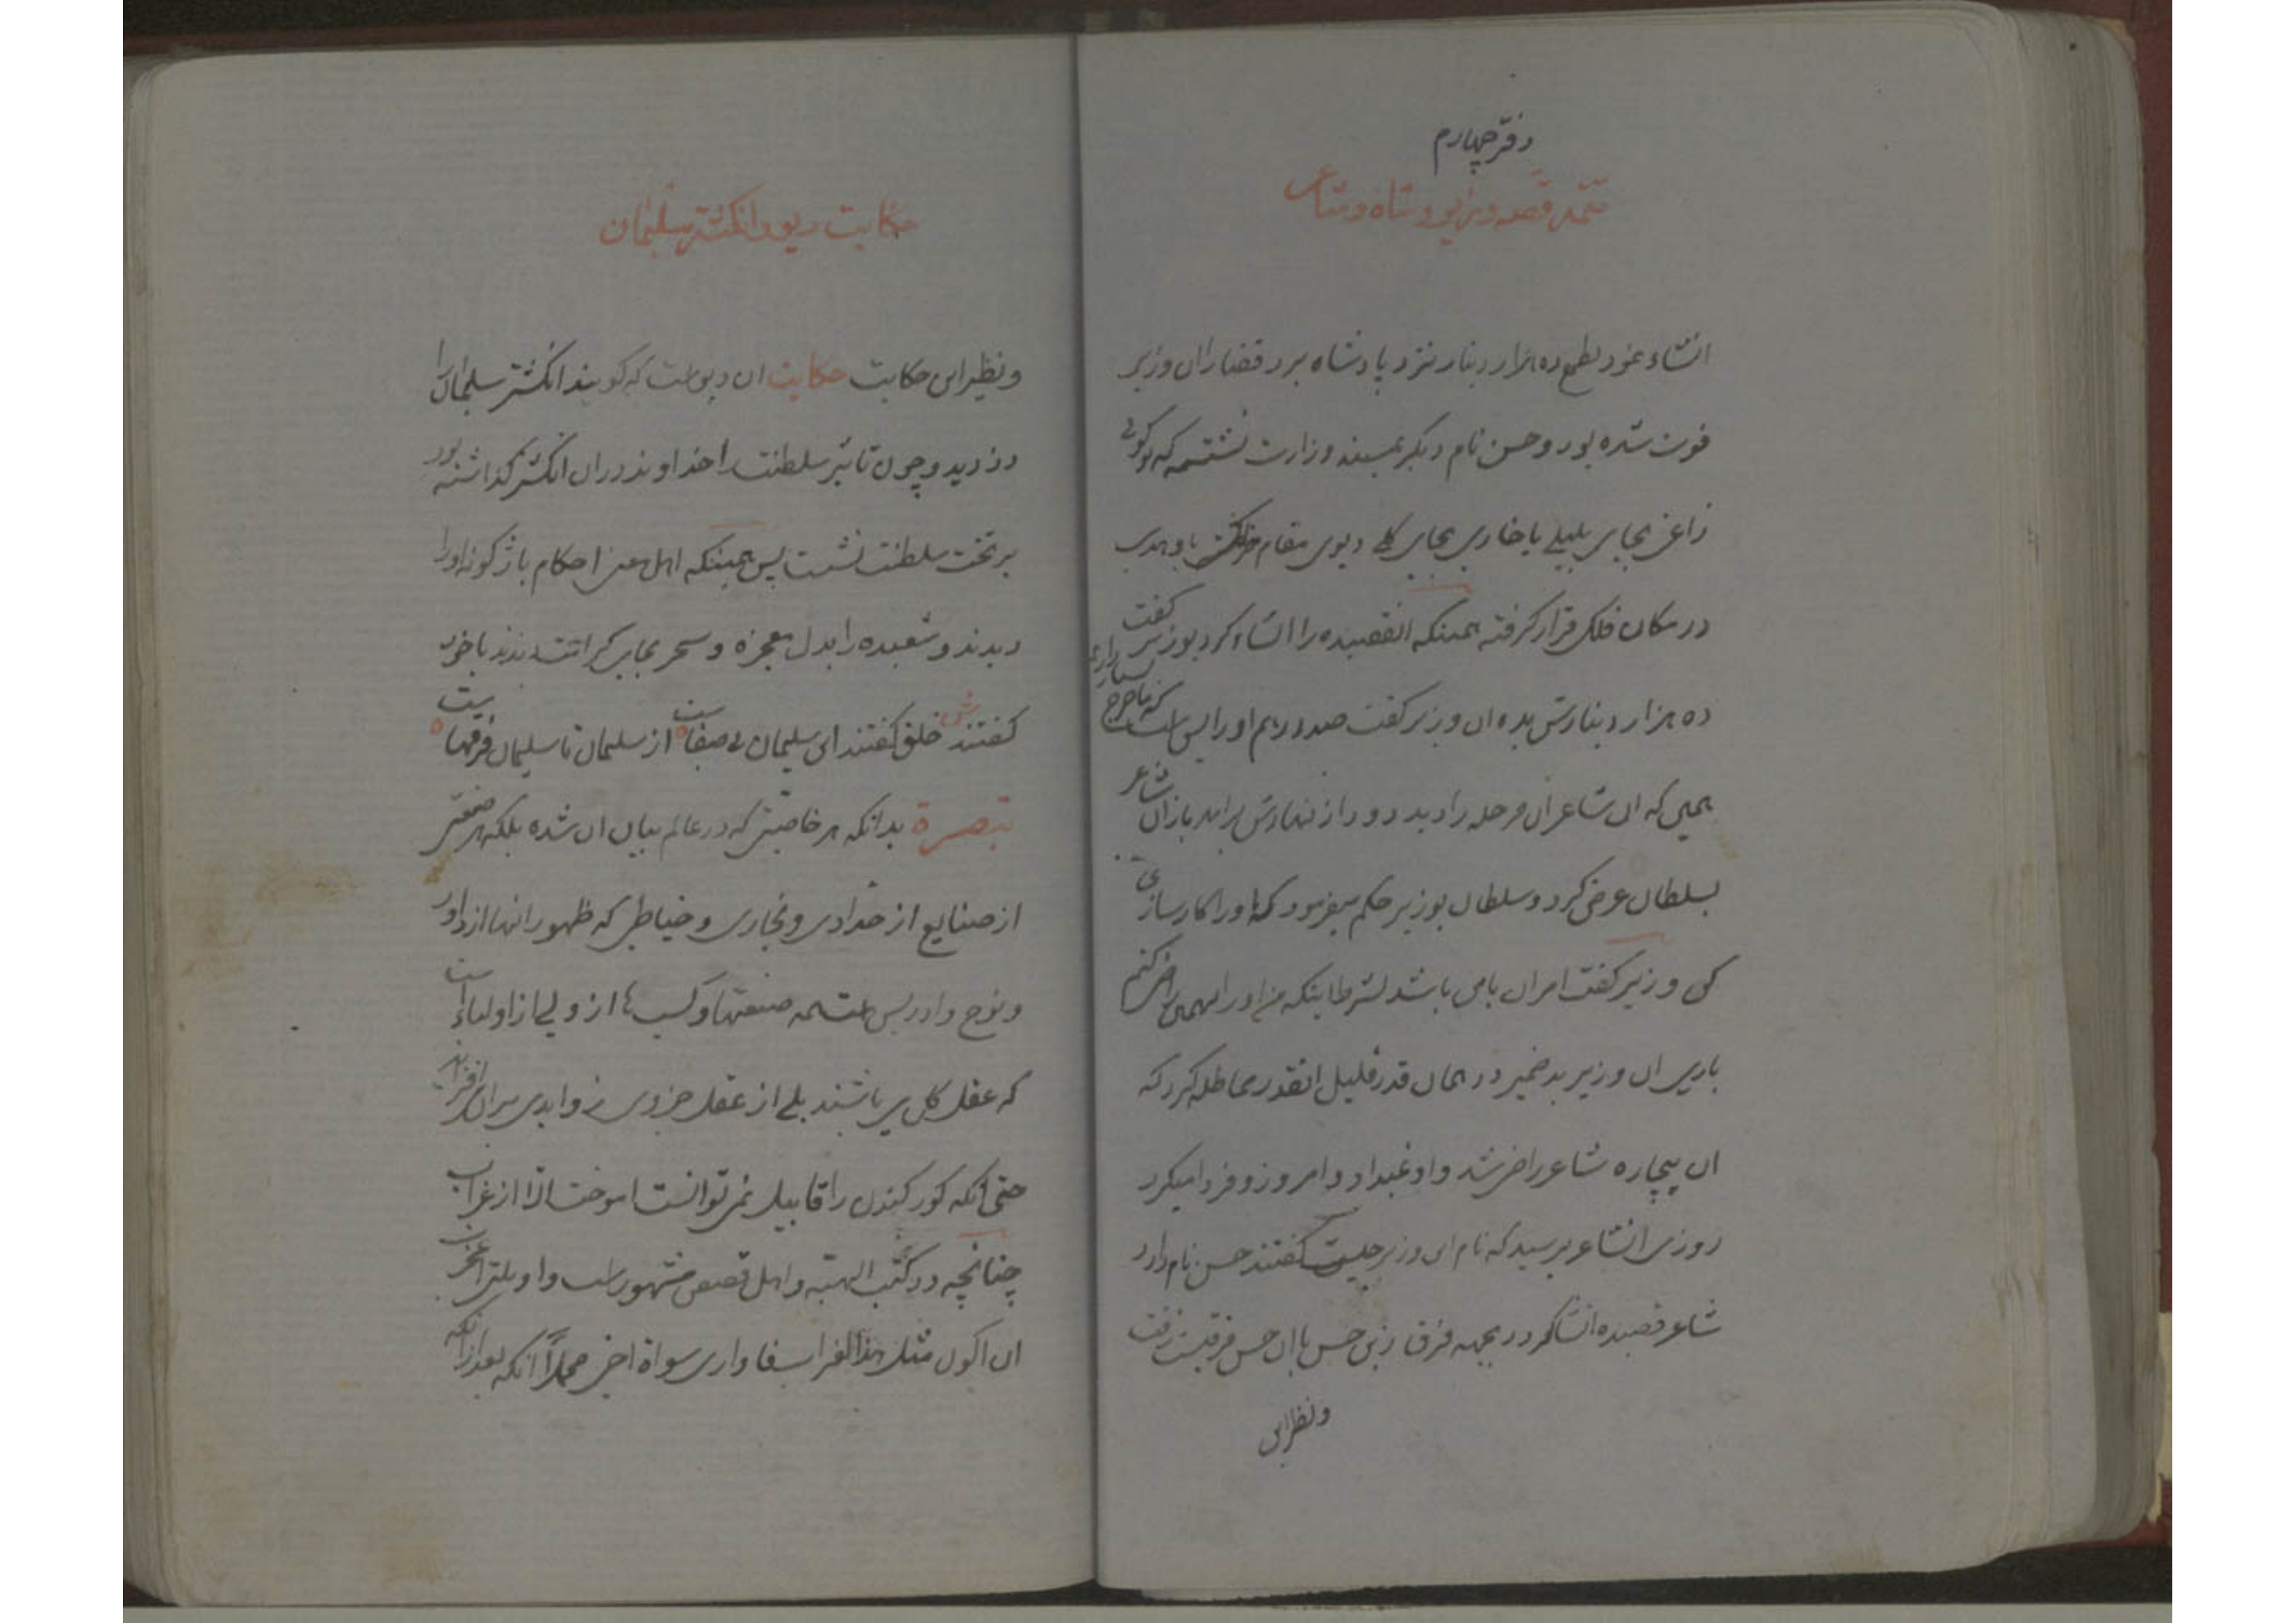 دفتر چهارم
تتمه قصه وزیر و شاه و شاعر
انشاء نمود بطمع ده هزار دینار نزد پادشاه برد قضا را ان وزیر
فوت شده بود و حسن نام دیگر بمسند وزارت نشسته که تو کوئی
زاغی بجای بلبلی یا خاری بجای کلی دیوی مقام
در مکان فلک قرار کرفته همینکه انقصیده را انشاء کرد بوزیر کفت
ده هزار دینارش بده ان وزیر کفت صد درهم او را بس است که ما خرج بسیار داریم
همین که ان شاعر ان مرحله را دید دود از نهادش برامد باز ان شاعر
بسلطان عرض کرد و سلطان بوزیر حکم میفرمود که او را کارسازی
کن وزیر کفت امر ان با من باشد بشرط اینکه من او را بهمین راضی کنم
باری ان وزیر بد ضمیر در همان قدر قلیل انقدر مماطله کرد که
ان بیچاره شاعر راضی شد و او نمیداد و امروز و فردا میکرد
روزی انشاعر پرسید که نام این وزیر چیست کفتند حسن نام دارد
شاعر قصیده انشا کرد در بجهه فرق زین حسن تا ان حسن فرقیست زفت
و نظیر این
حکایت دیو و انکشتر سلیمان
و نظیر این حکایت حکایت ان دیو است که کویند انکشتر سلیمان را
دزدید و چون تاثیر سلطنت را خداوند در ان انکشتر کذاشته بود
بر تخت سلطنت نشست پس همینکه اهل معنی احکام باژکونه او را
دیدند و شعبده را بدل معجزه و سحر بجای کرامت دیدند با خود
کفتند خلق کفتند این سلیمان بی صفاست از سلیمان تا سلیمان فرقهاست
تبصرة بدانکه هر خاصیتی که در عالم بیان ان شده بلکه هر صنعتی
از صنایع از حدادی و نجاری و خیاطی که ظهور انها از داود
و نوح و ادریس است همه صنعتها و کسب ها از ولی از اولیاء است
که عقل کل می باشند بلی از عقل جزوی زوایدی بر ان افزاید
حتی انکه کور کندن را قابیل نمی توانست اموخت الا از غراب
چنانچه در کتب الهیه و اهل قصص مشهور است و او یلتی اعجزت
ان اکون مثل هذا الغراب فاواری سواة اخی مجملاً انکه بعد از انکه